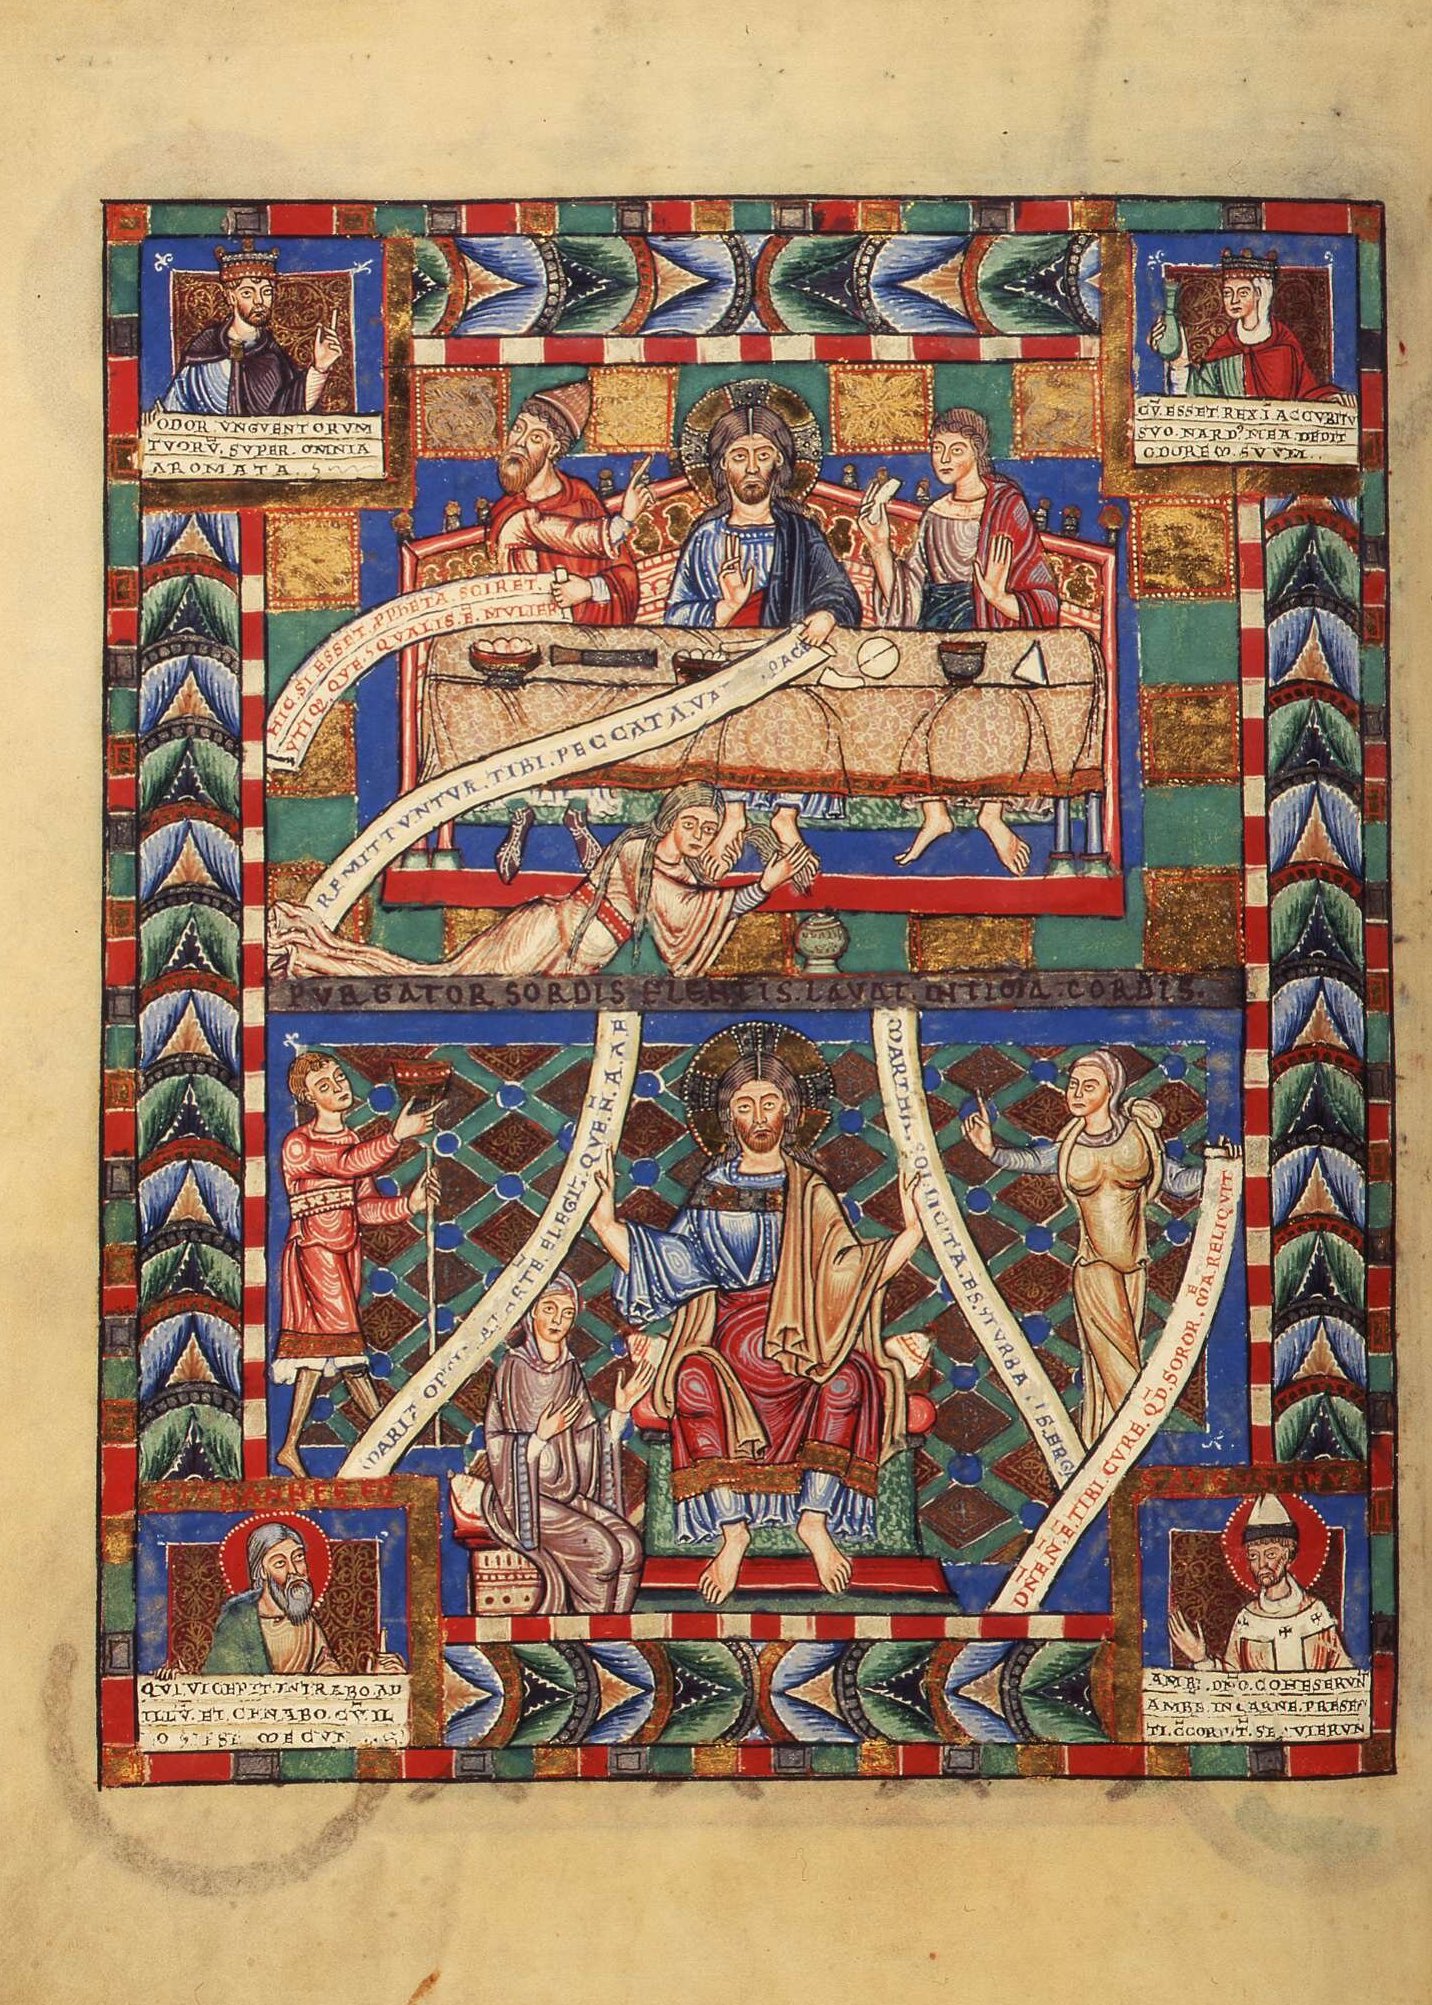 ODOR VNGVENTORVM
TVORV̄. SVPER. OMNIA
AROMATA.
CV̄. ESSET. REX. Ī ACCVBITV
SVO. NARDꝰ MEA. DEDIT
ODOREM. SVVM.
HIC. SI ESSET. PPHETA. SCIRET.
VTIQ. QVE. QVALIS. Ē. MVLIER
REMITTVNTVR. TIBI. PECCATA. VA PACE
PVRGATOR SORDIS FLENTIS. LAVAT. INTIMA. CORDIS.
MARIA ELEGIT. QVE. N̄. A
MARTHA. SOLLICITA. ES. TVRBA. IS. ERGA
DNE. N. Ē. TIBI. CVRE. QD. SOROR. MEA. RELIQVIT
IOHANNES. EV
AVGVSTINVS
QVI. VICERIT. INTRABO. AD
ILLV̄. ET. CENABO. CV̄. IL
MECVM
AMBE. DNO. COHESERVN
AMBE. IN CARNE. PRESEN
TI. CCORDIT. SERVIERVN